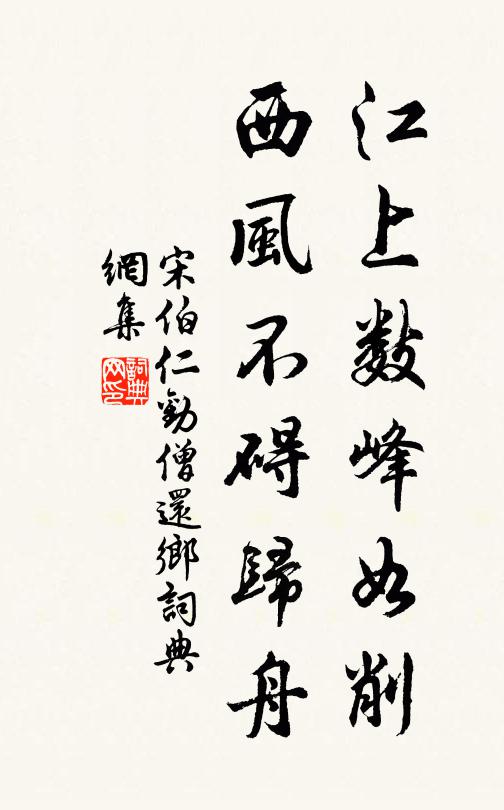 江上數峰如削
西風不碍歸舟
宋伯仁勸僧還鄉詞典
網集
詞典
网印